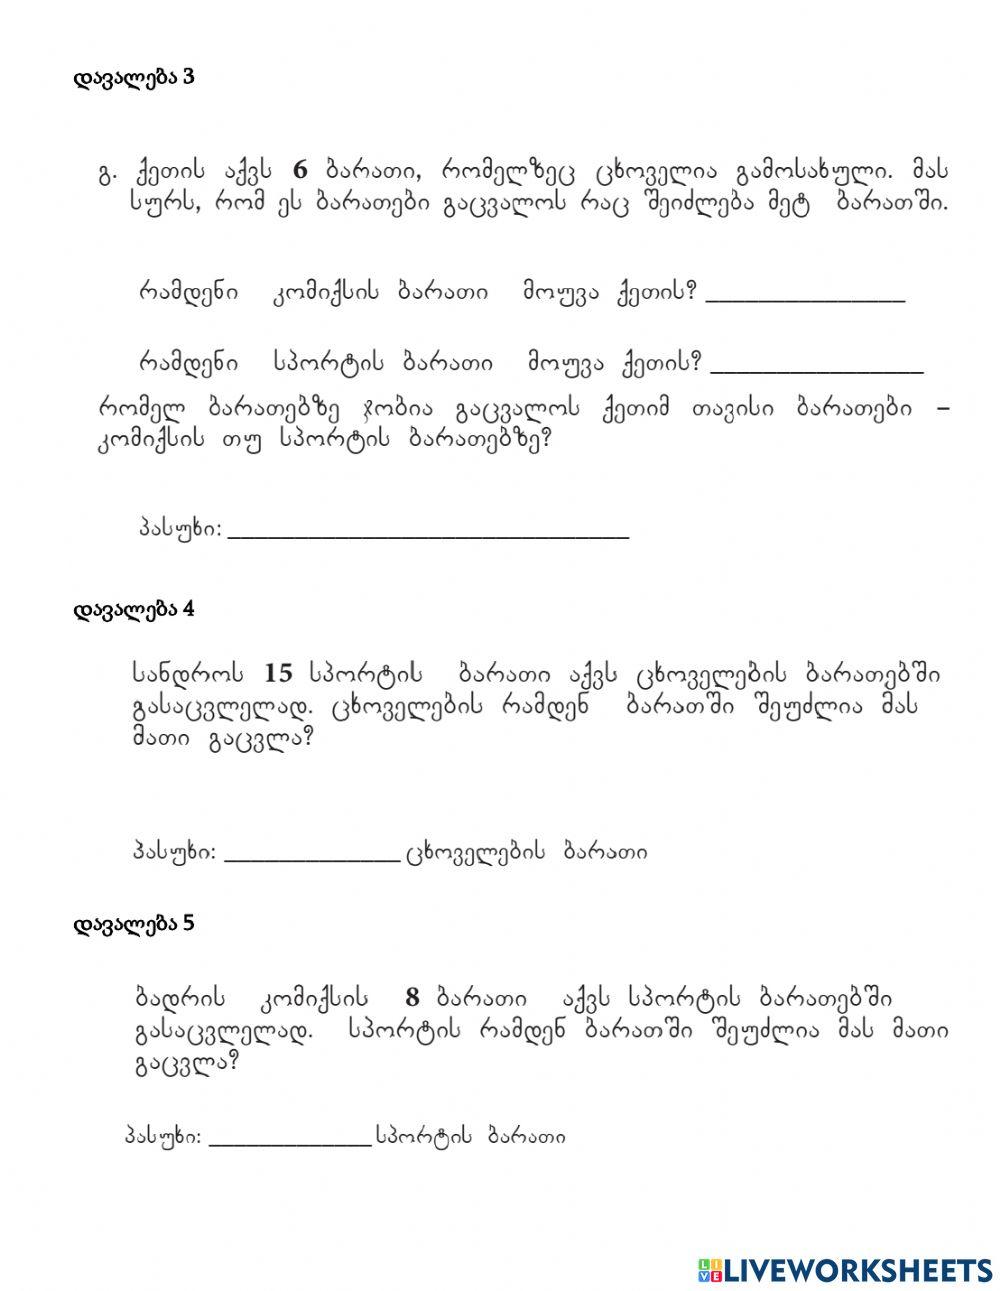 დავალება 3
გ. ქეთის აქვს 6 ბარათი, რომელზეც ცხოველია გამოსახული. მას
სურს, რომ ეს ბარათები გაცვალოს რაც შეიძლება მეტ ბარათში.
რამდენი კომიქსის ბარათი მოუვა ქეთის? _______________
რამდენი სპორტის ბარათი მოუვა ქეთის? ________________
რომელ ბარათებზე ჯობია გაცვალოს ქეთიმ თავისი ბარათები –
კომიქსის თუ სპორტის ბარათებზე?
პასუხი: ______________________________
დავალება 4
სანდროს 15 სპორტის ბარათი აქვს ცხოველების ბარათებში
გასაცვლელად. ცხოველების რამდენ ბარათში შეუძლია მას
მათი გაცვლა?
პასუხი: _____________ ცხოველების ბარათი
დავალება 5
ბადრის კომიქსის 8 ბარათი აქვს სპორტის ბარათებში
გასაცვლელად. სპორტის რამდენ ბარათში შეუძლია მას მათი
გაცვლა?
პასუხი: _____________ სპორტის ბარათი
LIVE LIVEWORKSHEETS